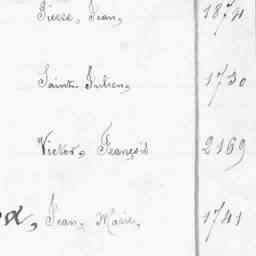 Pierre, Jean, 1871
Saint-Julien, 1730
Victor, François 2169
Jean, Marie, 1741